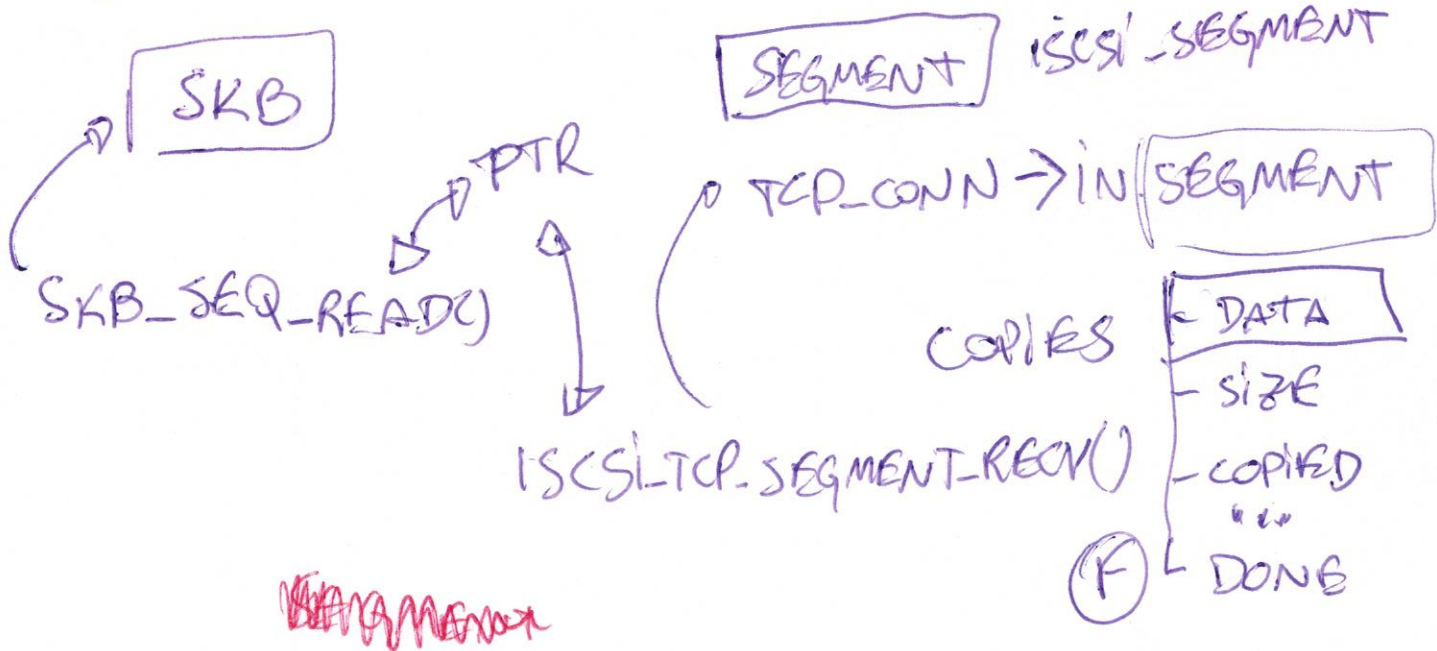 SEGMENT iSCSi_SEGMENT
SKB
PTR
TCP_CONN → iN SEGMENT
SKB_SEQ_READ()
COPiES
- DATA
- SiZE
- COPiED
...
DONE
ISCSi_TCP_SEGMENT_RECV()
F